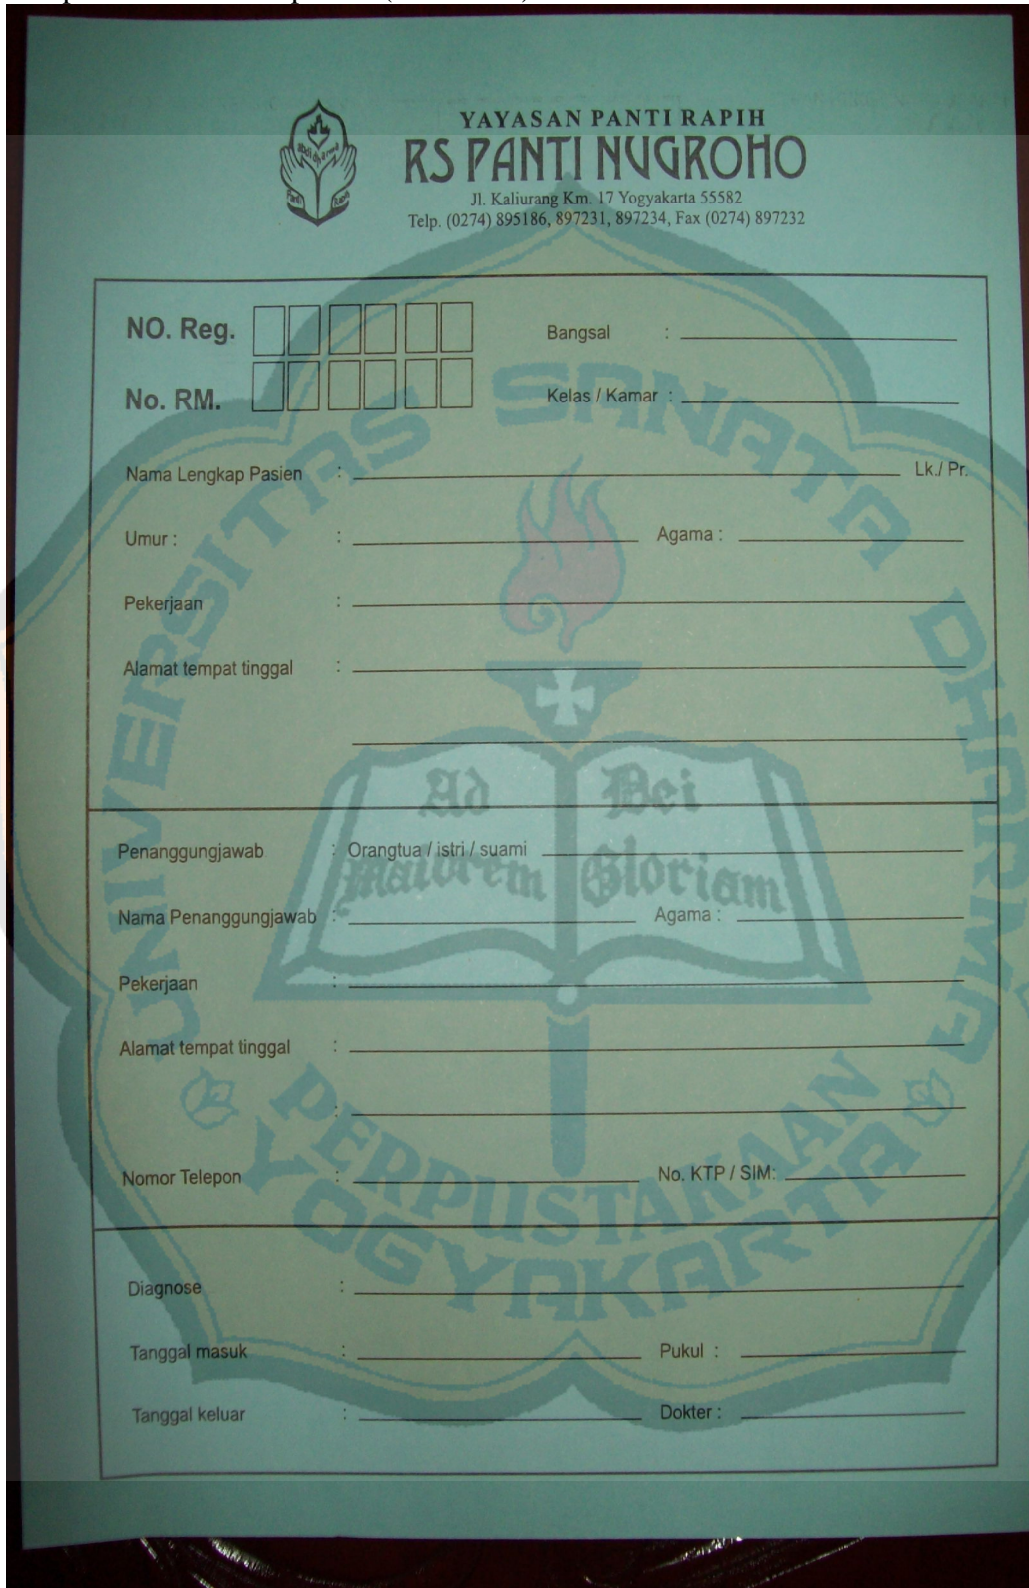 YAYASAN PANTI RAPIH
RS PANTI NUGROHO
Jl. Kaliurang Km. 17 Yogyakarta 55582
Telp. (0274) 895186, 897231, 897234, Fax (0274) 897232
NO. Reg.
Bangsal :
No. RM.
Kelas / Kamar :
Nama Lengkap Pasien : Lk./ Pr.
Umur : : Agama :
Pekerjaan :
Alamat tempat tinggal :
Penanggungjawab : Orangtua / istri / suami
Nama Penanggungjawab : Agama :
Pekerjaan :
Alamat tempat tinggal :
:
Nomor Telepon : No. KTP / SIM:
Diagnose :
Tanggal masuk : Pukul :
Tanggal keluar : Dokter :
UNIVERSITAS SANATA DHARMA
Ad Maiorem
Dei Gloriam
PERPUSTAKAAN
YOGYAKARTA